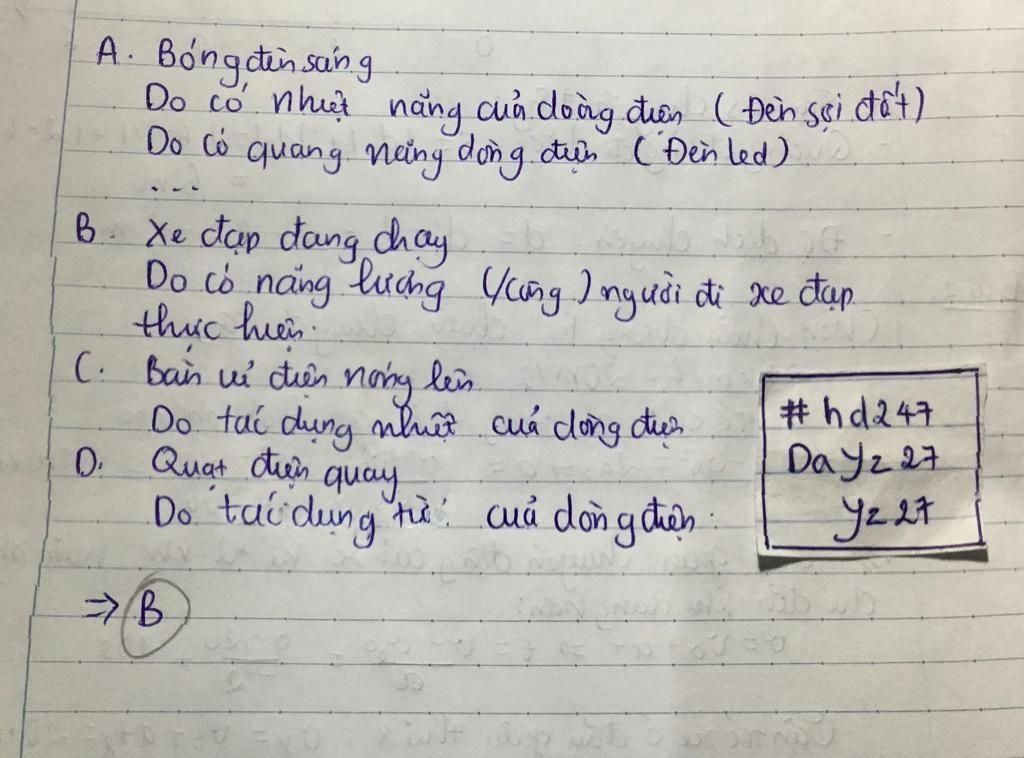 A. Bóng đèn sáng
Do có nhiệt năng của doàng điện (Đèn sợi đốt)
Do có quang năng dòng điện (Đèn led)
...
B. Xe đạp đang chạy
Do có năng lượng (/công) người đi xe đạp
thực hiện.
C. Bàn ủi điện nóng lên
Do tác dụng nhiệt của dòng điện
D. Quạt điện quay
Do tác dụng từ của dòng điện.
#hd247
Dayz27
yz27
⇒ B